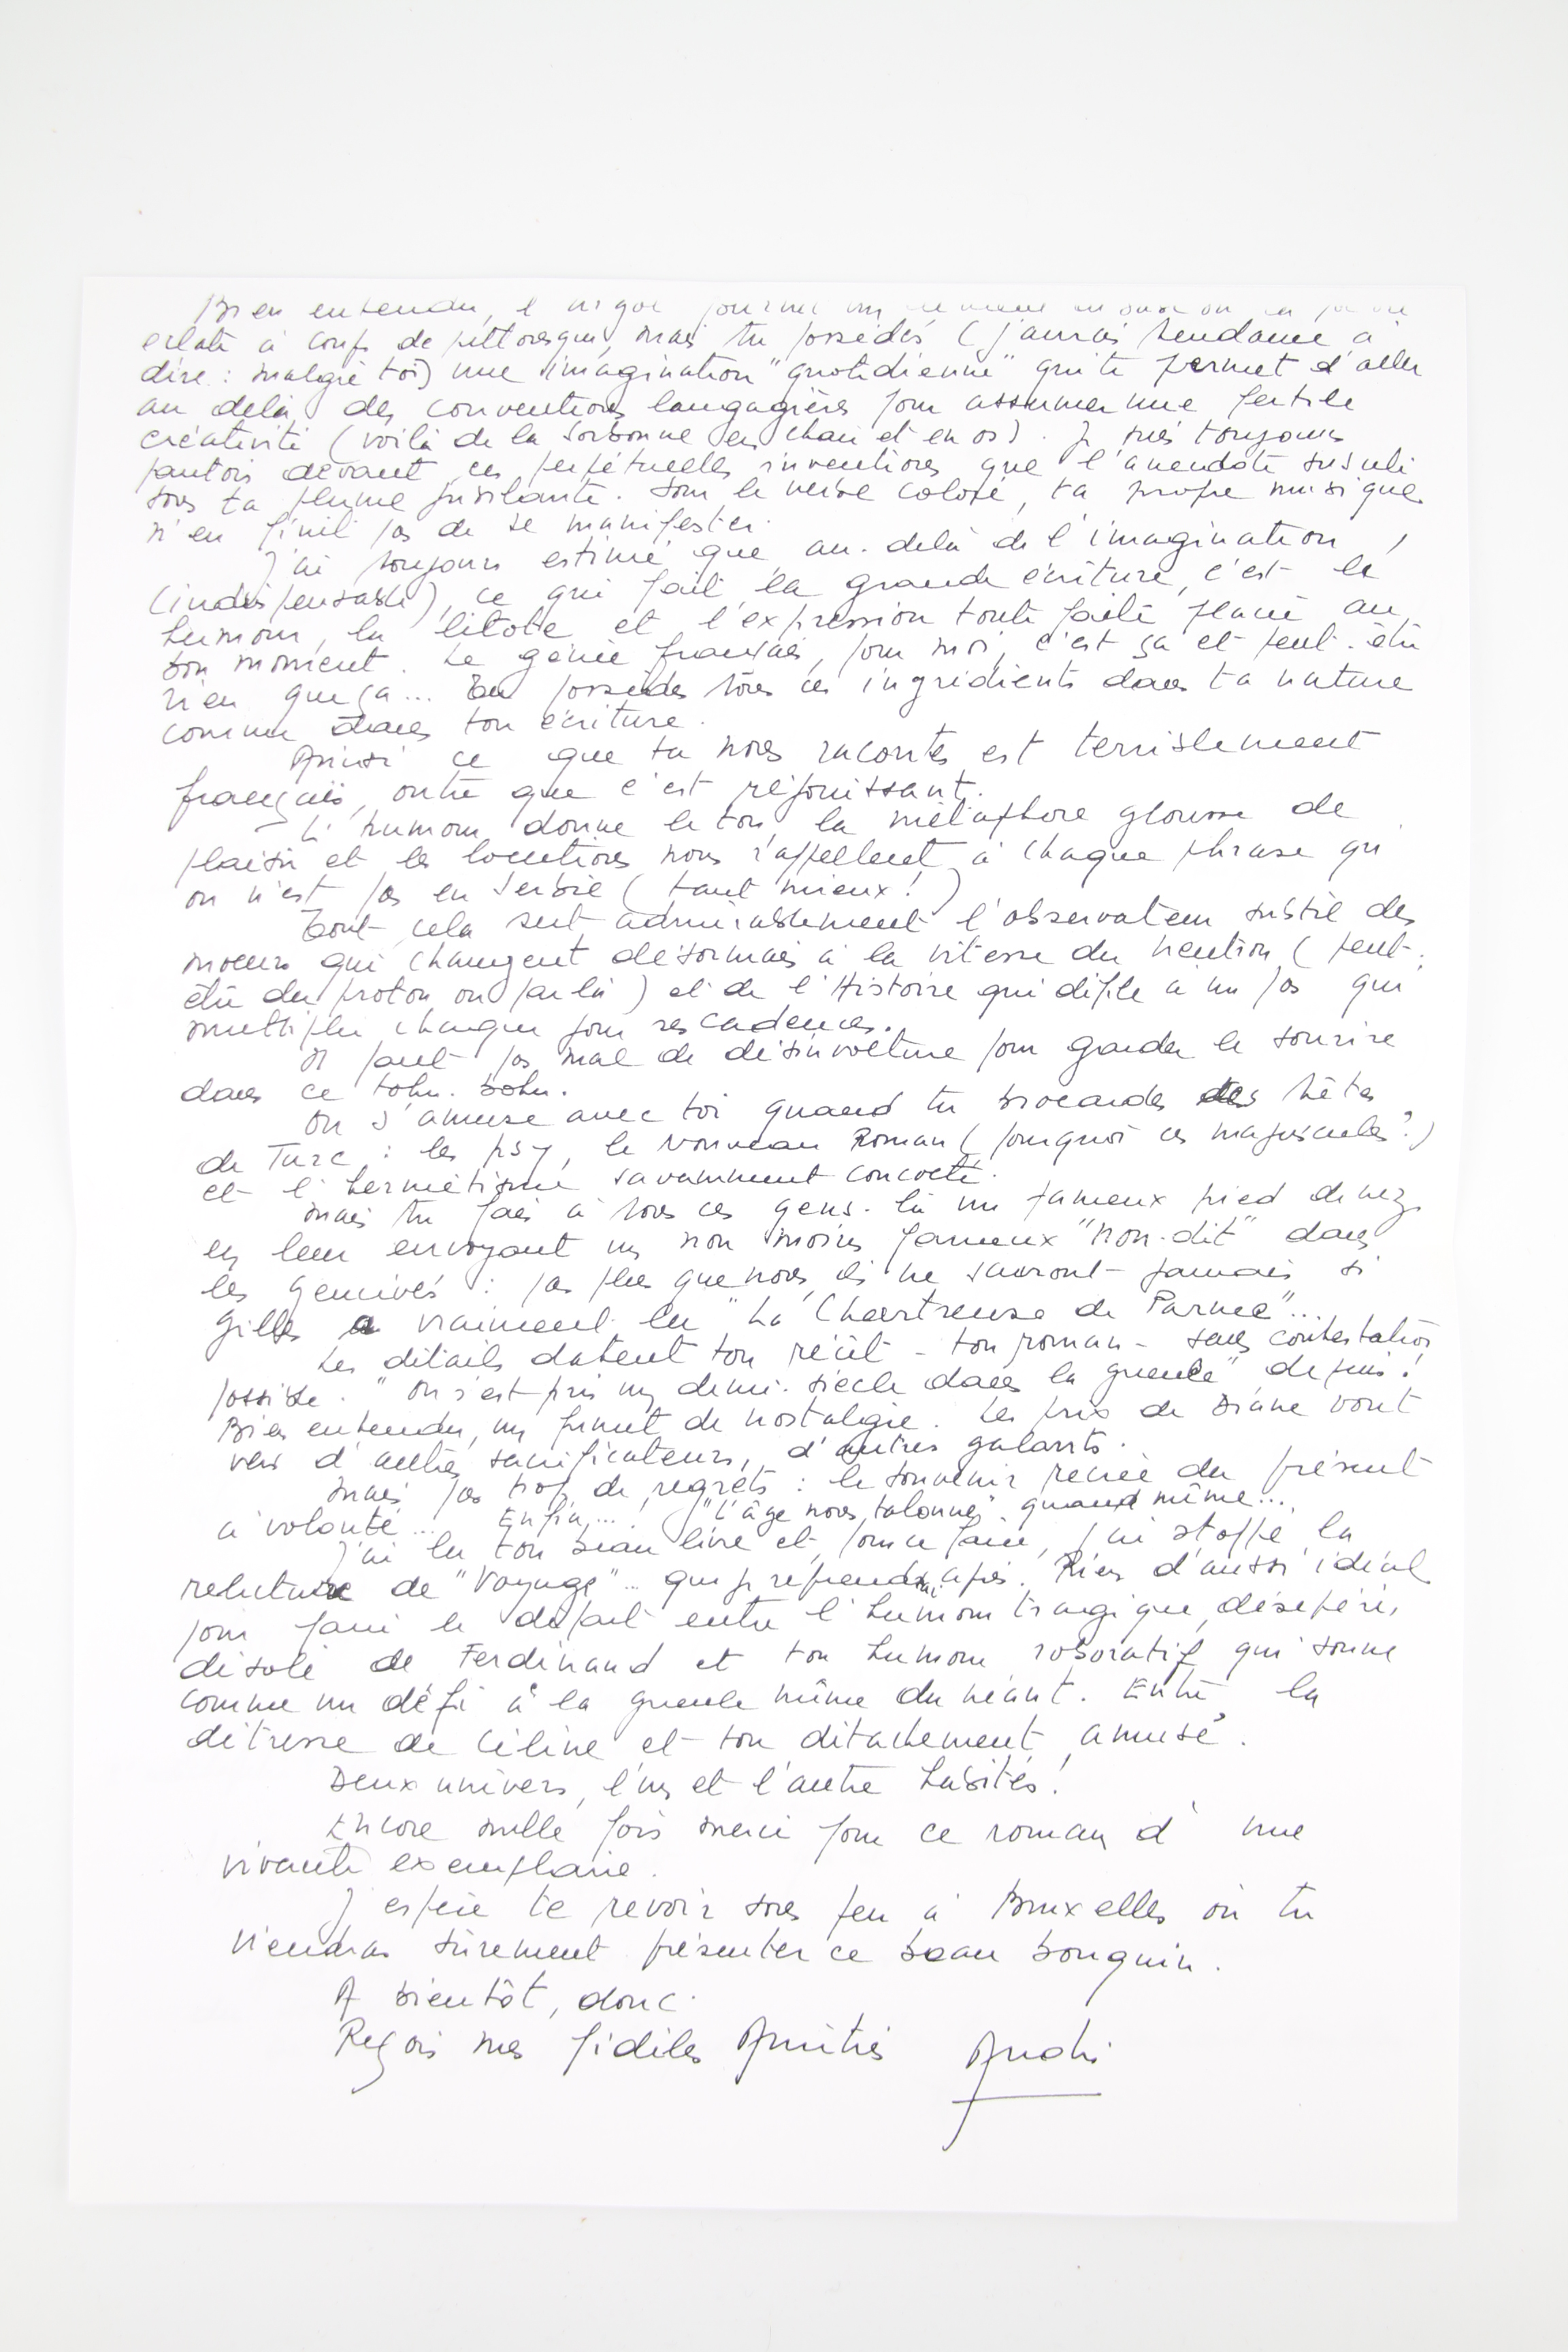 Bien entendu, l'argot fournit un
éclate à coups de pittoresque, mais tu possèdes (j'aurais tendance à
dire : malgré toi) une imagination "quotidienne" qui te permet d'aller
au delà des conventions langagières pour assumer une fertile
créativité (voilà de la Sorbonne en chair et en os). Je suis toujours
pantois devant ces perpétuelles inventions que l'anecdote suscite
sous ta plume jubilante. Sous le verbe coloré, ta propre musique
n'en finit pas de se manifester.
J'ai toujours estimé que, au-delà de l'imagination
(indispensable), ce qui fait la grande écriture, c'est le
humour, la litote et l'expression toute faite placée au
bon moment. Le génie français, pour moi, c'est ça et peut-être
rien que ça... Tu possèdes tous ces ingrédients dans ta nature
comme dans ton écriture.
Ainsi ce que tu nous racontes est terriblement
français, outre que c'est réjouissant.
L'humour donne le ton, la métaphore glousse de
plaisir et les locutions nous rappellent à chaque phrase qu'
on n'est pas en Serbie (tant mieux !)
Tout cela sert admirablement l'observateur subtil des
moeurs qui changent désormais à la vitesse du neutron (peut-
être du proton ou par là) et de l'Histoire qui défile à un pas qui
multiplie chaque jour ses cadences.
Il faut pas mal de désinvolture pour garder le sourire
dans ce tohu-bohu.
On s'amuse avec toi quand tu brocardes des têtes
de Turc : les psy, le Nouveau Roman (pourquoi ces majuscules ?)
et l'hermétisme savamment concocté.
Mais tu fais à tous ces gens-là un fameux pied de nez
en leur envoyant un non moins fameux "non-dit" dans
les gencives : pas plus que nous, ils ne sauront jamais si
Gilles a vraiment lu "La Chartreuse de Parme"...
Les détails datent ton récit - ton roman - sans contestation
possible. "On s'est pris un demi-siècle dans la gueule" depuis !
Bien entendu, un fumet de nostalgie. Les prix de Diane vont
vers d'autres sacrificateurs, d'autres galants.
Mais pas trop de regrets : le souvenir recrée du présent
à volonté... Enfin,... ! "L'âge nous talonne" quand même...
J'ai lu ton beau livre et, pour ce faire, j'ai stoppé la
relecture de "Voyage"... que je reprendrai après. Rien d'aussi idéal
pour faire le départ entre l'humour tragique, désespéré,
désolé de Ferdinand et ton humour roboratif qui sonne
comme un défi à la gueule même du néant. Entre la
détresse de Céline et ton détachement amusé.
Deux univers, l'un et l'autre habités !
Encore mille fois merci pour ce roman d'une
vivante exemplaire.
J'espère te revoir sous peu à Bruxelles où tu
viendras sûrement présenter ce beau bouquin.
A bientôt, donc.
Reçois mes fidèles Amitiés André